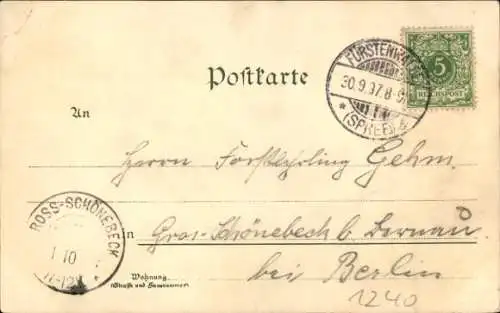 Postkarte
FÜRSTENWALDE
30.9.97.8-9
* (SPREE) *
5
REICHSPOST
An
Herrn Forstlehrling Gehm.
GROSS-SCHÖNEBECK
1 10
11-12
in Gros-Schönebeck b. Bernau
bei Berlin
Wohnung
(Straße und Hausnummer)
1240